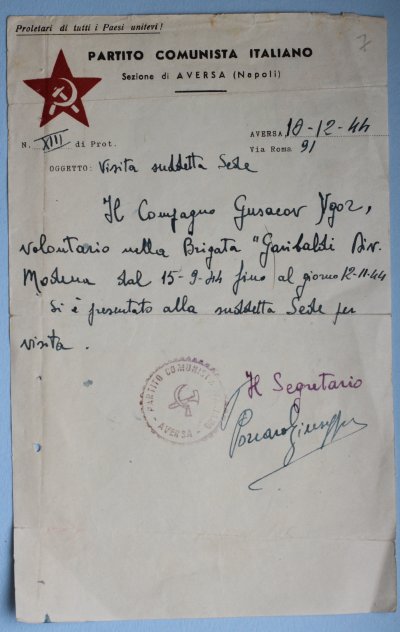 Proletari di tutti i Paesi unitevi!
7
PARTITO COMUNISTA ITALIANO
Sezione di AVERSA (Napoli)
N. XIII di Prot.
AVERSA 18-12-44
Via Roma 91
OGGETTO: Visita suddetta Sede
Il Compagno Gusacov Ygor,
volontario nella Brigata "Garibaldi Div.
Modena dal 15-9-44 fino al giorno 12-11-44
si è presentato alla suddetta Sede per
visita.
PARTITO COMUNISTA
AVERSA
Il Segretario
Giuseppe